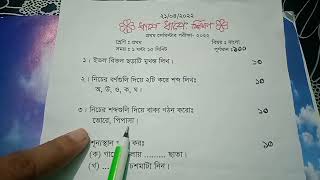 ২১/০৩/২০২২
প্রথম সেমিস্টার পরীক্ষা- ২০২২
শ্রেণী : প্রথম বিষয় : বাংলা
সময় : ১ ঘন্টা ১০ মিনিট পূর্ণমান : ১০০
১। ইতল বিতল ছড়াটি মুখস্ত লিখ। ১০
২। নিচের বর্ণগুলি দিয়ে ২টি করে শব্দ লিখঃ ১০
অ, উ, ও, ক, ঘ।
৩। নিচের শব্দগুলি দিয়ে বাক্য গঠন করোঃ ১০
ভোরে, পিপাসা।
শূন্যস্থান করোঃ ১০
(ক) ......... ছাতা।
(খ) চশমাটা দিন।